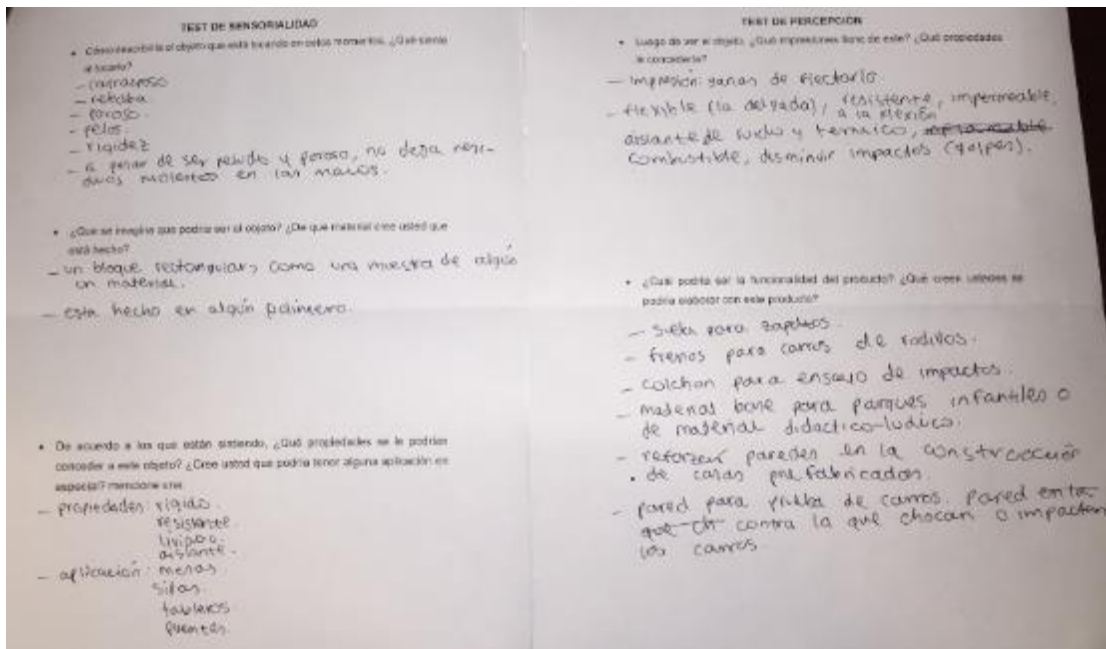 TEST DE SENSORIALIDAD
• Cómo describiría el objeto que está tocando en estos momentos. ¿Qué siente
al tocarlo?
– carrasposo
– rebaba
– poroso
– pelos
– rigidez
– a pesar de ser peludo y poroso, no deja resi-
duos molestos en las manos.
• ¿Qué se imagina que podría ser el objeto? ¿De que material cree usted que
está hecho?
– un bloque rectangular, como una muestra de algún
un material.
– esta hecho en algún polimero.
• De acuerdo a los que están sintiendo, ¿Qué propiedades se le podrían
conceder a este objeto? ¿Cree usted que podría tener alguna aplicación en
especial? mencione una
– propiedades: rigido
resistente
liviano
aislante.
– aplicación: mesas
sillas
tableros
puentes.
TEST DE PERCEPCIÓN
• Luego de ver el objeto. ¿Qué impresiones tiene de este? ¿Qué propiedades
le concedería?
– Impresión: ganas de flectarlo
– flexible (la delgada), resistente, impermeable,
a la flexión
aislante de ruido y termico,
combustible, disminuir impactos (golpes).
• ¿Cuál podría ser la funcionalidad del producto? ¿Qué creen ustedes se
podría elaborar con este producto?
– Suela para zapatos.
– frenos para carros de rodillos.
– colchon para ensayo de impactos.
– material base para parques infantiles o
de material didactico-ludico.
– reforzar paredes en la construcción
de casas prefabricadas.
– pared para prueba de carros. Pared en la
que ch contra la que chocan o impactan
los carros